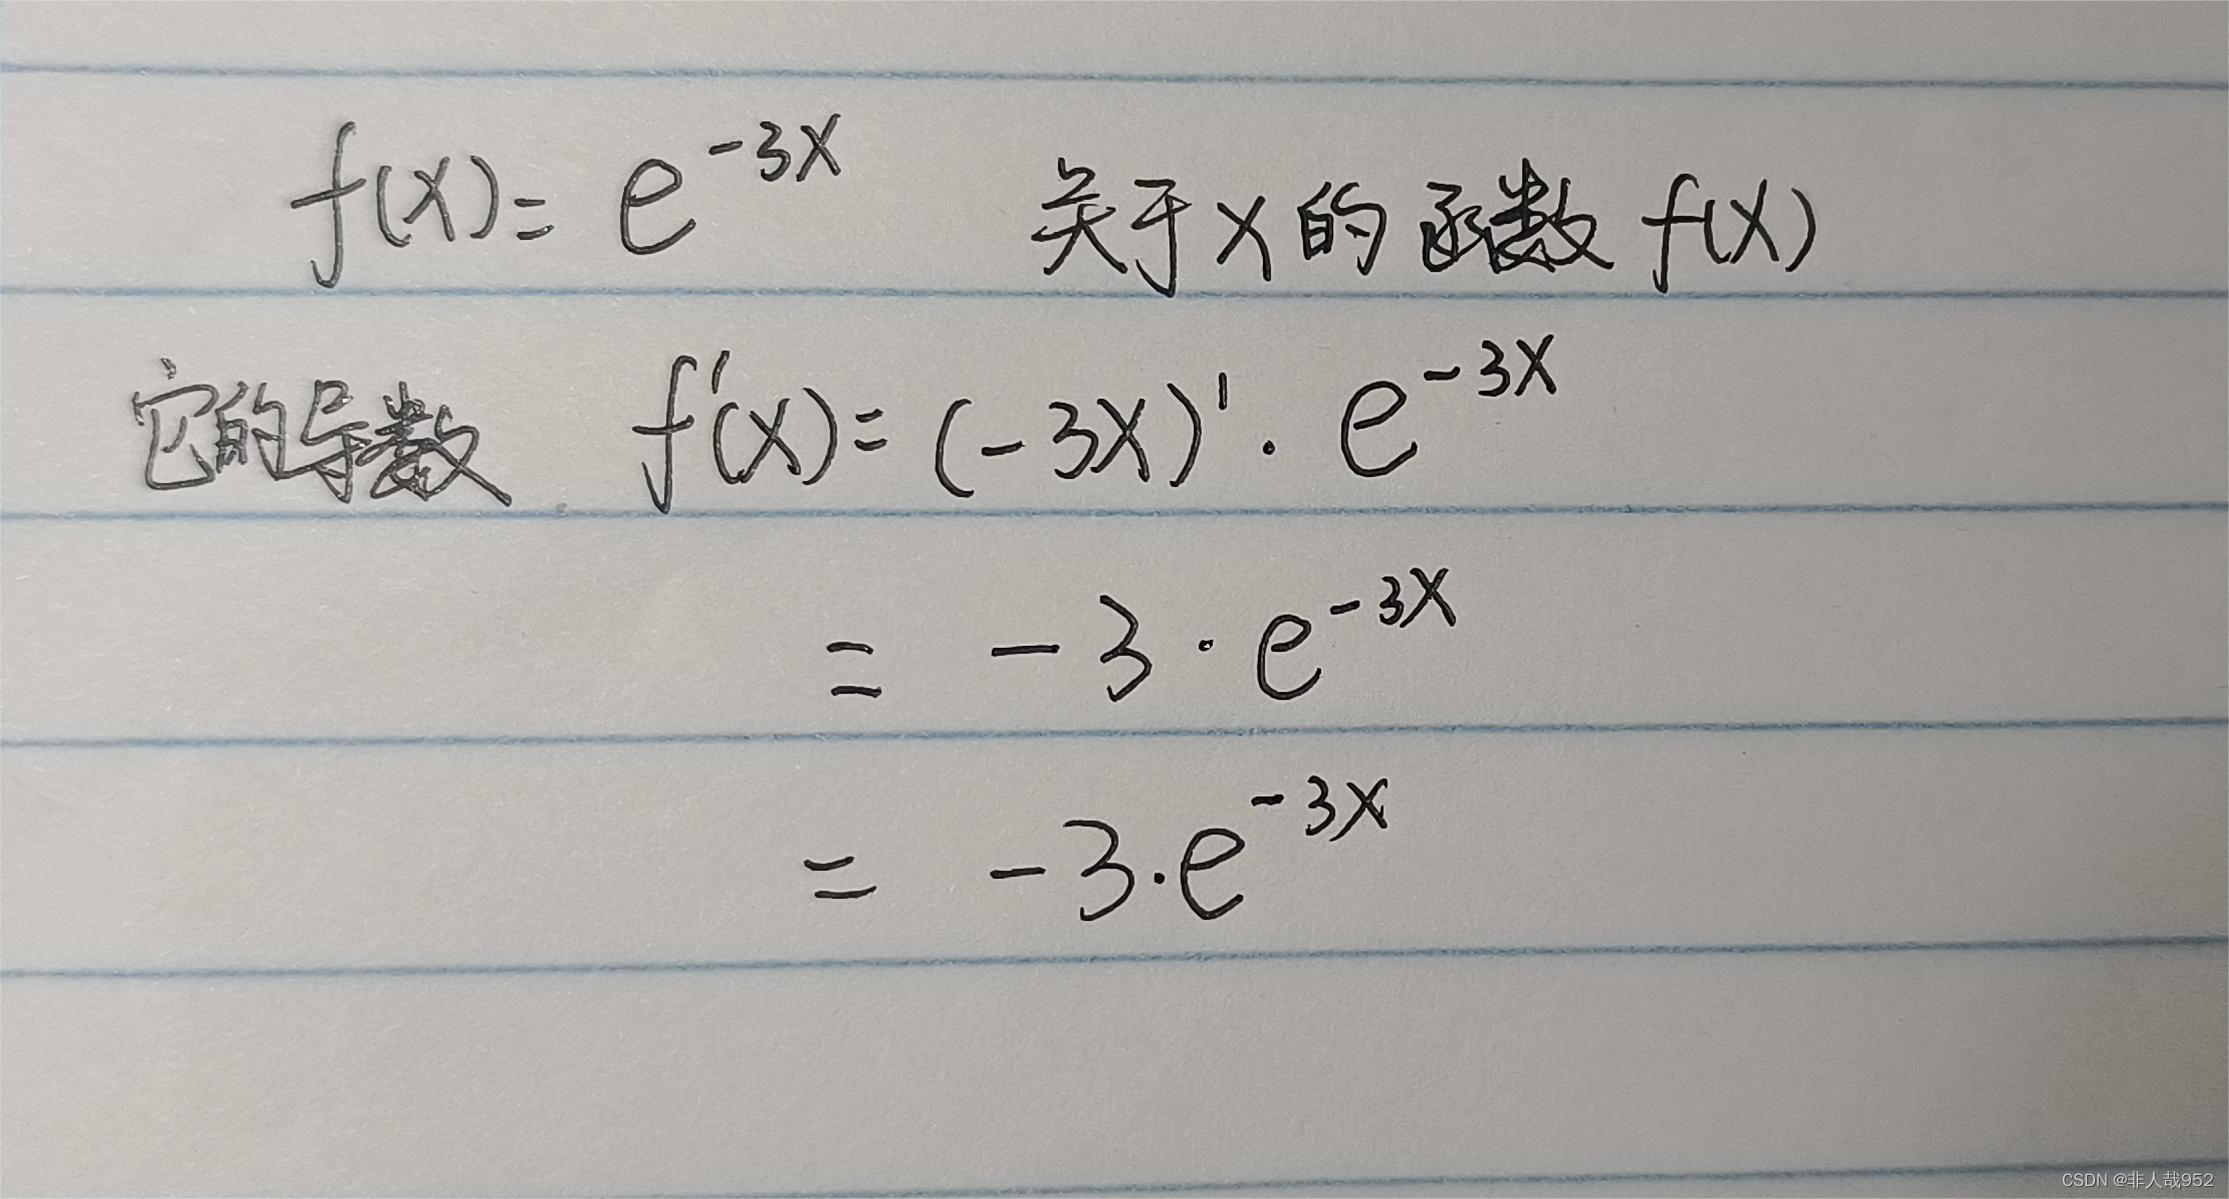 f(x) = e^{-3x} 关于x的函数f(x)
它的导数 f'(x) = (-3x)' · e^{-3x}
= -3 · e^{-3x}
= -3 · e^{-3x}
CSDN @非人哉952